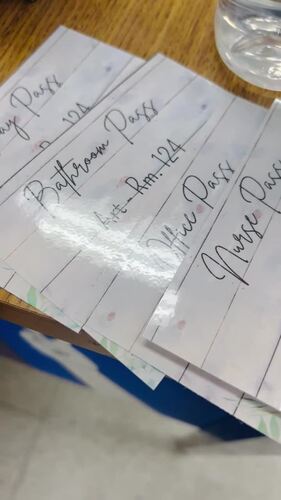 Pass
124
Bathroom Pass
Art - Rm. 124
Office Pass
Nurse Pass